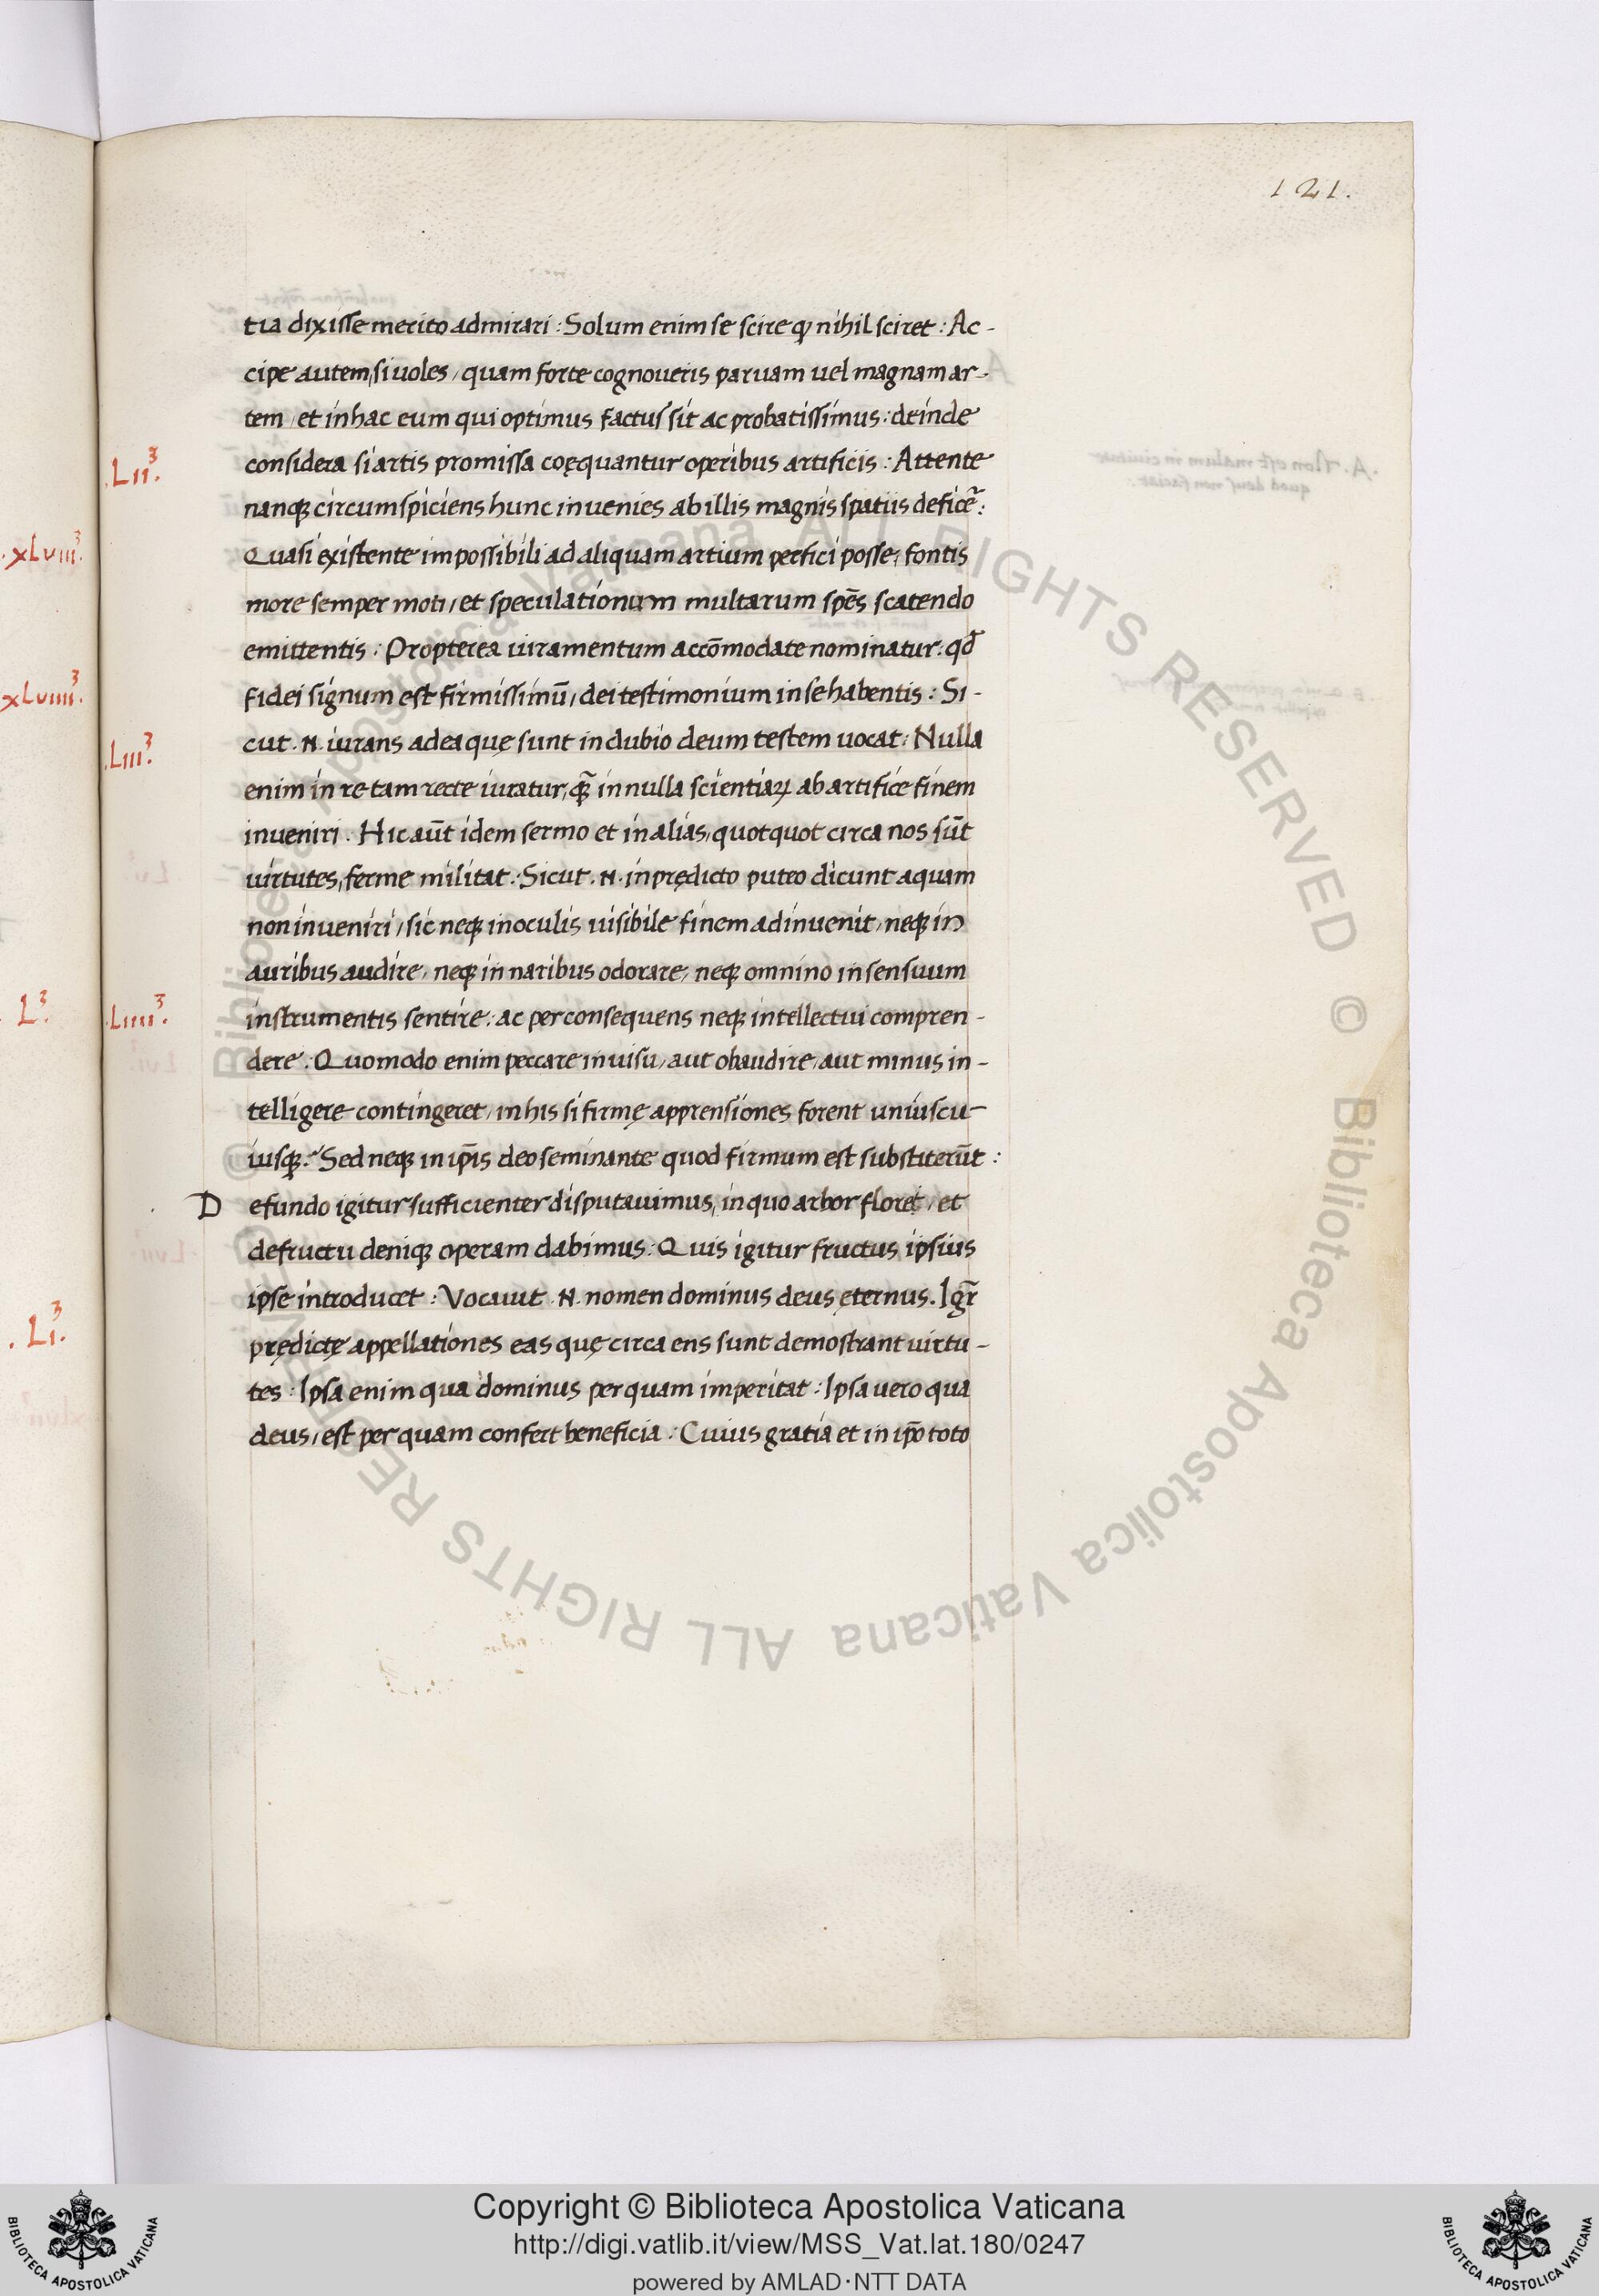 121.
tia dixisse merito admirari : Solum enim se scire ꝙ nihil sciret : Ac-
cipe autem, si uoles, quam forte cognoueris paruam uel magnam ar-
tem, et in hac eum qui optimus factus sit ac probatissimus : deinde
.Lii³.
considera si artis promissa coęquantur operibus artificis : Attente
nanqꝫ circumspiciens hunc inuenies ab illis magnis spatiis deficẽ :
.xLviii³.
Quasi existente impossibili ad aliquam artium perfici posse, fontis
more semper moti, et speculationum multarum spẽs scatendo
emittentis : Propterea iuramentum accõmodate nominatur : qd̃
xLviiii³.
fidei signum est firmissimũ, dei testimonium in se habentis : Si-
.Liii³.
cut .N. iurans ad ea quę sunt in dubio deum testem uocat : Nulla
enim in re tam recte iuratur, qꝫ̃ in nulla scientiaꝝ ab artifice finem
inueniri . Hic aũt idem sermo et in alias, quotquot circa nos sũt
uirtutes, ferme militat : Sicut .N. in prędicto puteo dicunt aquam
non inueniri, sic neqꝫ in oculis uisibile finem adinuenit, neqꝫ in
auribus audire, neqꝫ in naribus odorare, neqꝫ omnino in sensuum
L³.
.Liiii³.
instrumentis sentire : ac per consequens neqꝫ intellectui compren-
dere : Quomodo enim peccare in uisu, aut obaudire, aut minus in-
telligere contingeret, in his si firmę apprensiones forent uniuscu-
iusqꝫ : Sed neqꝫ in ip̃is deo seminante quod firmum est substiterũt :
D efundo igitur sufficienter disputauimus, in quo arbor floret, et
de fructu deniqꝫ operam dabimus : Quis igitur fructus ipsius
ipse introducet : Vocauit .N. nomen dominus deus ęternus . Igr̃
.Li³.
prędictę appellationes eas quę circa ens sunt demostrant uirtu-
tes : Ipsa enim qua dominus per quam imperitat : Ipsa uero qua
deus, est per quam confert beneficia : Cuius gratia et in ip̃o toto
© Biblioteca Apostolica Vaticana ALL RIGHTS RESERVED © Biblioteca Apostolica Vaticana ALL RIGHTS RESERVED
Copyright © Biblioteca Apostolica Vaticana
http://digi.vatlib.it/view/MSS_Vat.lat.180/0247
powered by AMLAD·NTT DATA
BIBLIOTECA APOSTOLICA VATICANA
BIBLIOTECA APOSTOLICA VATICANA